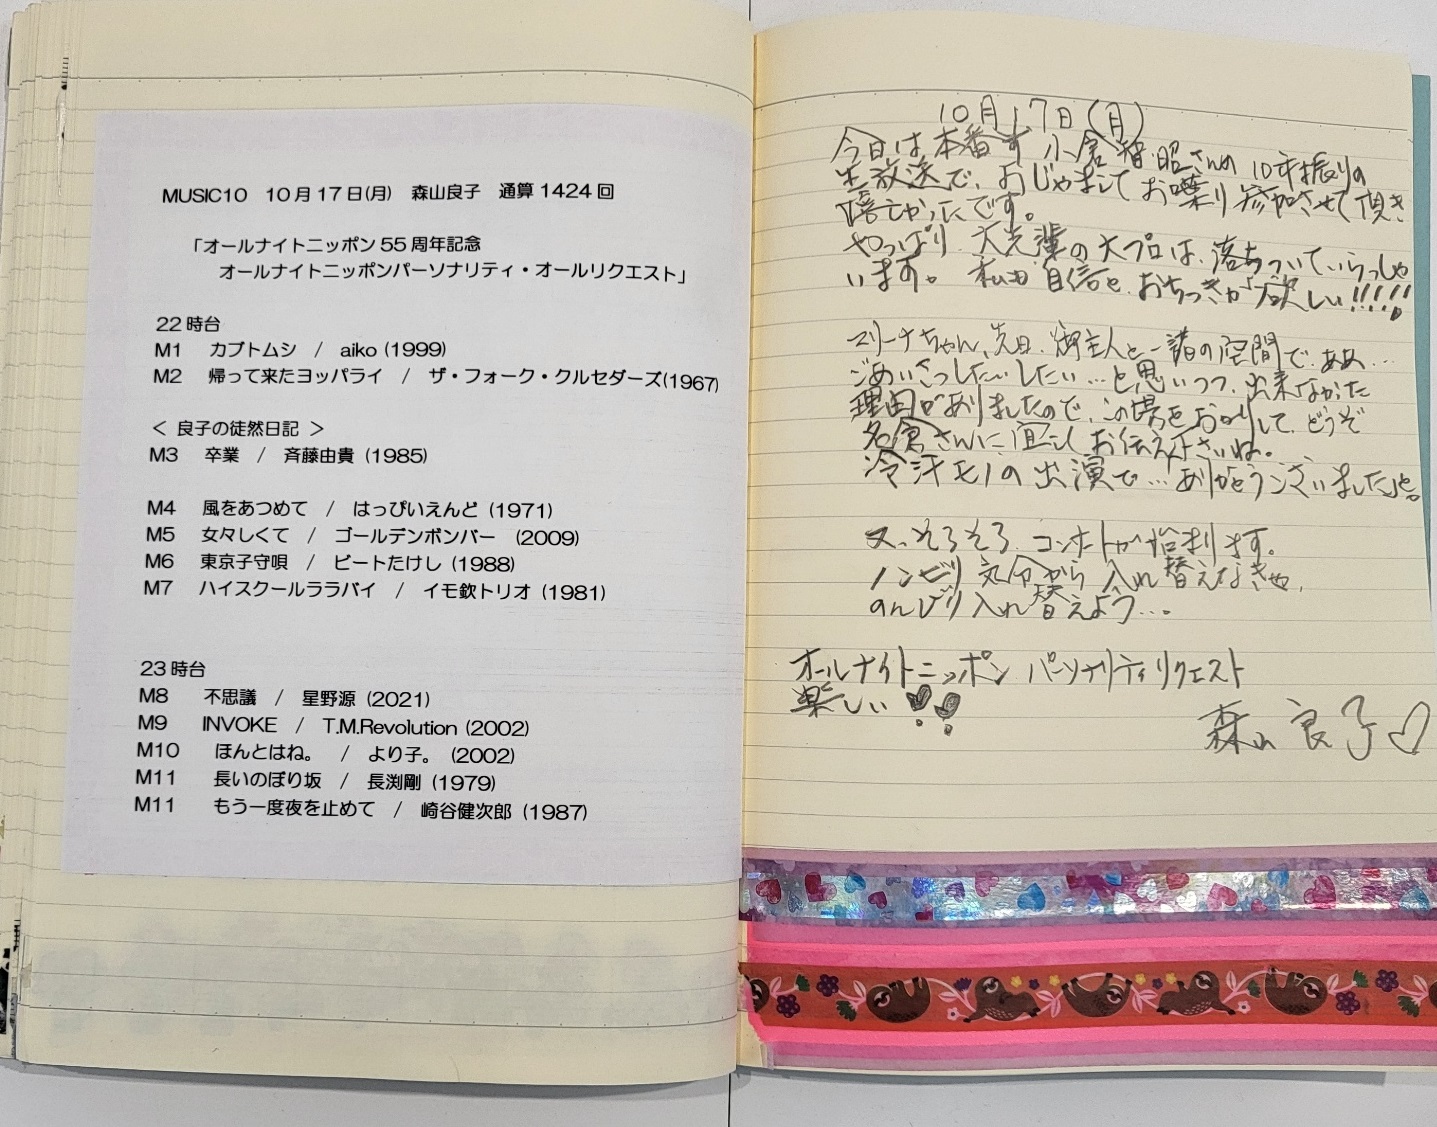 MUSIC10 10月17日(月) 森山良子 通算1424回
「オールナイトニッポン55周年記念
オールナイトニッポンパーソナリティ・オールリクエスト」
22時台
M1 カブトムシ / aiko (1999)
M2 帰って来たヨッパライ / ザ・フォーク・クルセダーズ(1967)
< 良子の徒然日記 >
M3 卒業 / 斉藤由貴 (1985)
M4 風をあつめて / はっぴいえんど (1971)
M5 女々しくて / ゴールデンボンバー (2009)
M6 東京子守唄 / ビートたけし (1988)
M7 ハイスクールララバイ / イモ欽トリオ (1981)
23時台
M8 不思議 / 星野源 (2021)
M9 INVOKE / T.M.Revolution (2002)
M10 ほんとはね。 / より子。 (2002)
M11 長いのぼり坂 / 長渕剛 (1979)
M11 もう一度夜を止めて / 崎谷健次郎 (1987)
10月17日(月)
今日は本番す 小倉智昭さんの 10年振りの
生放送で、おじゃましてお喋り参加させて頂き
嬉しかったです。
やっぱり 大先輩の大プロは、落ちついていらっしゃ
います。 私も 自信と、おちつきが「欲しい!!!!!
マリーナちゃん、先日、御主人と一諸の空間で、ああ…
ごめいさつした…したい…と思いつつ、出来なかった
理由がありましたので、この場をお借りして、どうぞ
名倉さんに宜しくお伝え下さいね。
冷汗モノの出演で…ありがとうございました」と。
又、そろそろ コンサートが始まります。
ノンビリ 気分から 入れ替えなきゃ、
のんびり入れ替えよう…。
オールナイトニッポン パーソナリティリクエスト
楽しい
森山良子♡